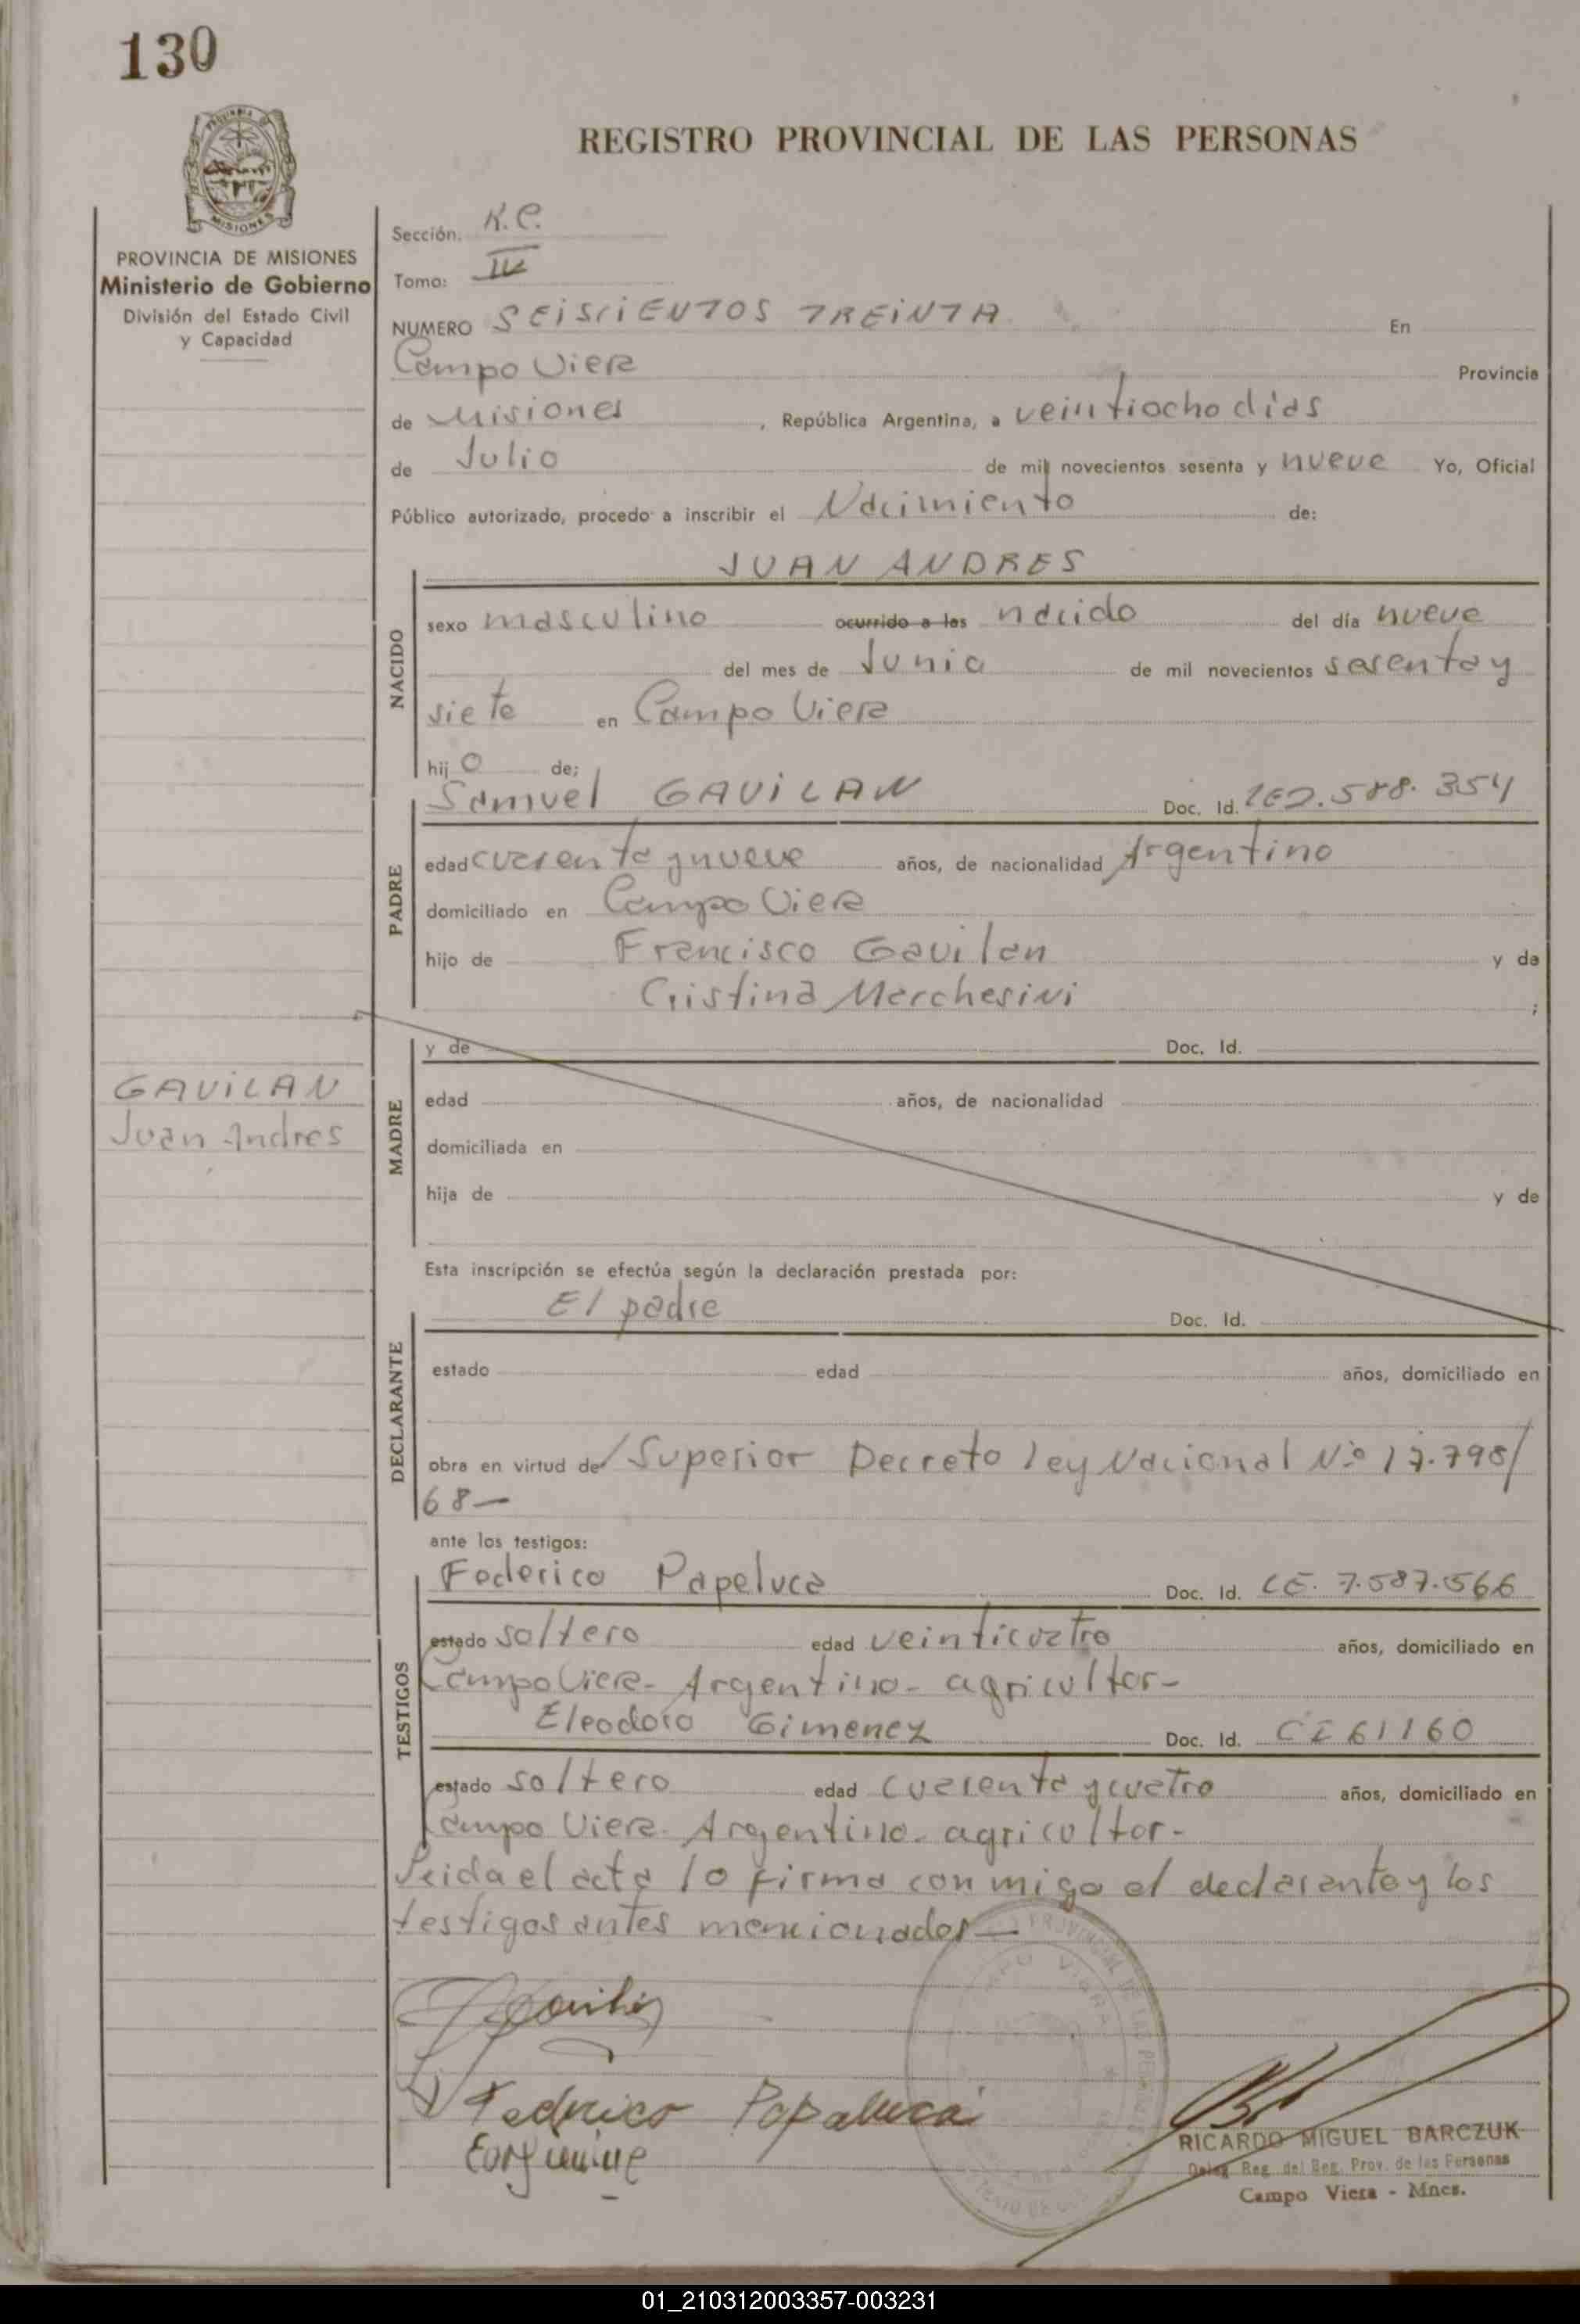 130
REGISTRO PROVINCIAL DE LAS PERSONAS
PROVINCIA DE MISIONES
Ministerio de Gobierno
División del Estado Civil
y Capacidad
Sección. K.C.
Tomo: IV
NUMERO SEISCIENTOS TREINTA En
Campo Viera Provincia
de Misiones , República Argentina, a veintiocho dias
de Julio de mil novecientos sesenta y nueve Yo, Oficial
Público autorizado, procedo a inscribir el Nacimiento de:
NACIDO
JUAN ANDRES
sexo masculino ocurrido a las nacido del día nueve
del mes de Junio de mil novecientos sesenta y
siete en Campo Viera
hijo de;
PADRE
Samuel GAVILAN Doc. Id. 588.354
edad cuarenta y nueve años, de nacionalidad Argentino
domiciliado en Campo Viera
hijo de Francisco Gavilan y de
Cristina Marchesini ;
MADRE
y de Doc. Id.
edad años, de nacionalidad
domiciliada en
hija de y de
GAVILAN
Juan Andres
Esta inscripción se efectúa según la declaración prestada por:
DECLARANTE
El padre Doc. Id.
estado edad años, domiciliado en
obra en virtud de/ Superior Decreto ley Nacional Nº 17.798/
68—
ante los testigos:
TESTIGOS
Federico Papaluca Doc. Id. CE. 7.587.566
estado soltero edad veinticuatro años, domiciliado en
Campo Viera- Argentino- agricultor-
Eleodoro Gimenez Doc. Id. CI 61160
estado soltero edad cuarenta y cuatro años, domiciliado en
Campo Viera- Argentino- agricultor-
Leida el acta lo firma con migo el declarante y los
testigos antes mencionados—
Gavilan
Federico Papaluca
RICARDO MIGUEL BARCZUK
Deleg Reg. del Reg. Prov. de las Personas
Campo Viera - Mnes.
01_210312003357-003231